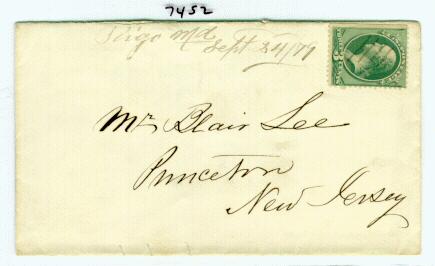 7452
Sligo Md
Sept 24/79
Mr Blair Lee
Princeton
New Jersey